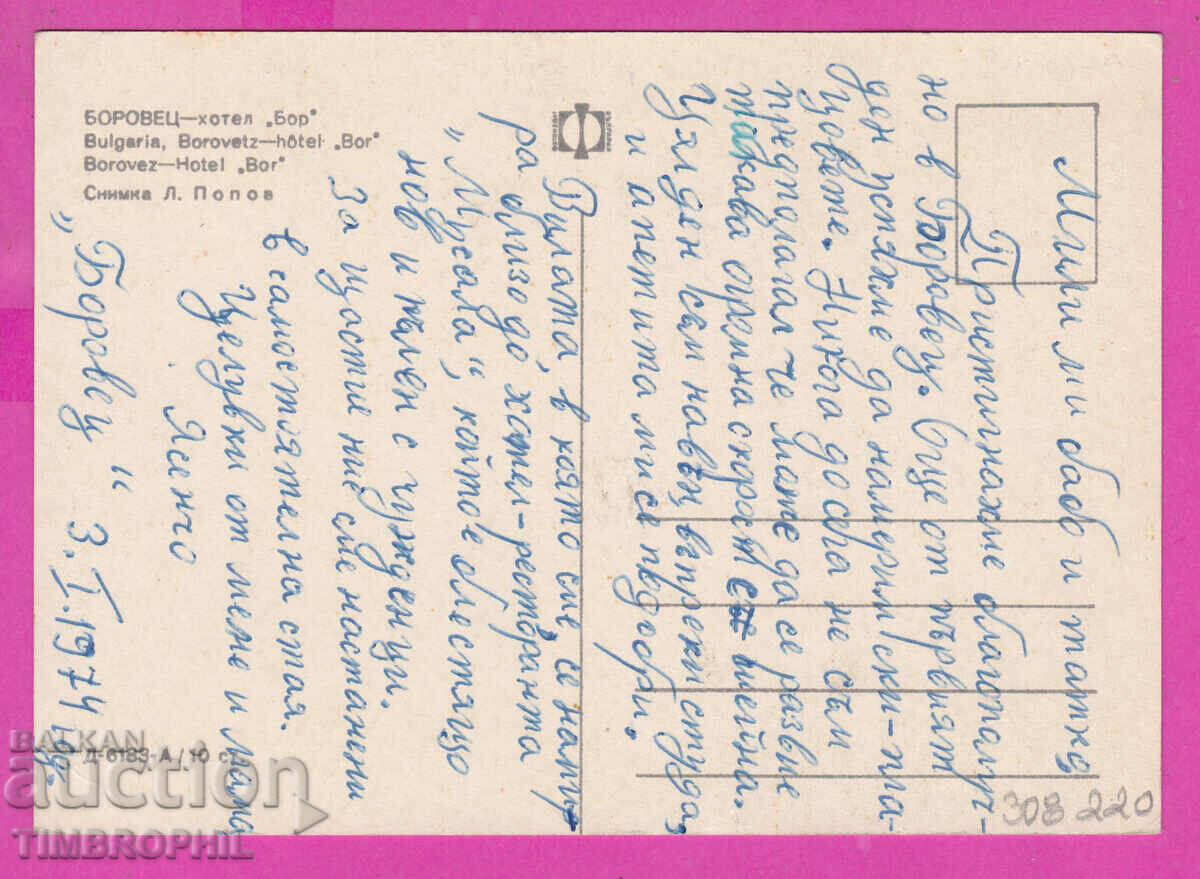 БОРОВЕЦ—хотел „Бор"
Bulgaria, Borovetz—hôtel „Bor"
Borovez—Hotel „Bor"
Снимка Л. Попов
Мили ми бабо и татко,
Пристигнахме благополуч-
но в Боровец. Още от първият
ден успяхме да намерим ски-пла-
цовете. Никога досега не съм
предполагал че мате да се развие
такава огромна скорост с шейна.
Цял ден съм навън, въпреки студа,
и апетита ми се подобри.
Вилата, в която сме, се нами-
ра близо до хотел-ресторанта
„Мусала", който е блестящо
нов и пълен с чужденци.
За щастие ние сме настанени
в самостоятелна стая.
Целувки от мене и мама
Ясенчо
„Боровец" 3.I.1974 г.
Д-6183-А / 10 ст.
308220
BALKAN
auction
TIMBROPHIL